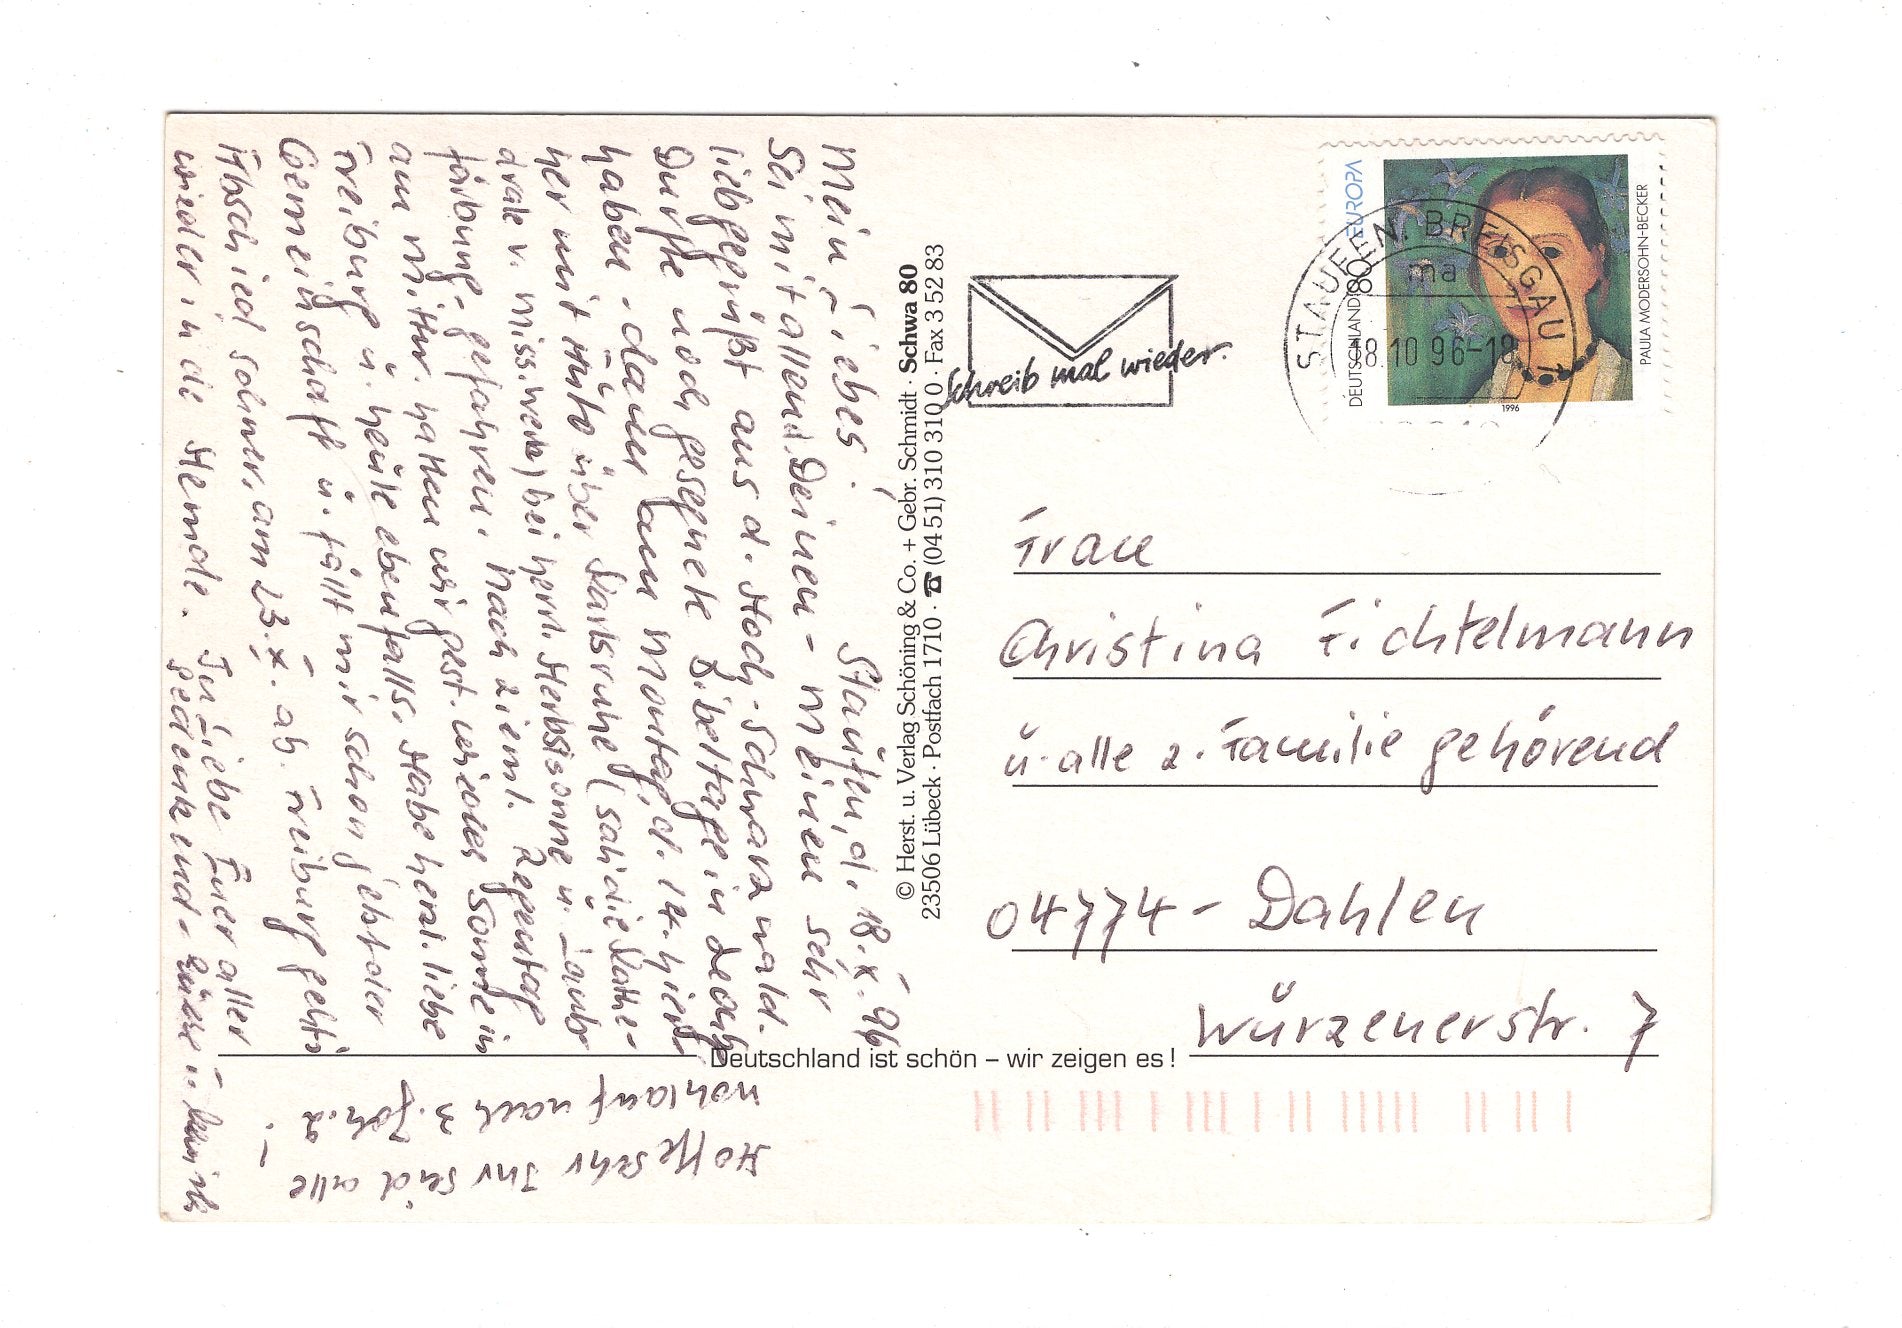 Mein Liebes!
Staufen, d. 18.X.96
Sei mit all Deinen – meinen sehr
liebgegrüßt aus d. Hoch-Schwarzwald.
Durfte noch gesegnete Bibeltage in
haben, dann am Montag, d. 14. hier-
her mit Auto über Karlsruhe (sah die Kathe-
drale v.) bei herrl. Herbstsonne u. Laub-
färbung – gefahren. Nach zieml. Regentag
am Mittw. hatten wir gest. wieder Sonne in
Freiburg u. heute ebenfalls. Habe herzl. liebe
Gemeinschaft u. fällt mir schon jetzt der
Abschied schwer, am 23.X. ab Freiburg geht's
wieder in die Fremde. In Liebe Euer aller
gedenkend –
Hoffe sehr Ihr seid alle
wohlauf nach 3. Joh. 2
© Herst. u. Verlag Schöning & Co. + Gebr. Schmidt · Schwa 80
23506 Lübeck · Postfach 1710 · ☎ (04 51) 310 310 0 · Fax 3 52 83
Schreib mal wieder.
STAUFEN, BREISGAU 1
ma
18.10.96-18
DEUTSCHLAND 80
EUROPA
PAULA MODERSOHN-BECKER
1996
Frau
Christina Fichtelmann
u. alle z. Familie gehörend
04774 – Dahlen
Wurzenerstr. 7
Deutschland ist schön – wir zeigen es!